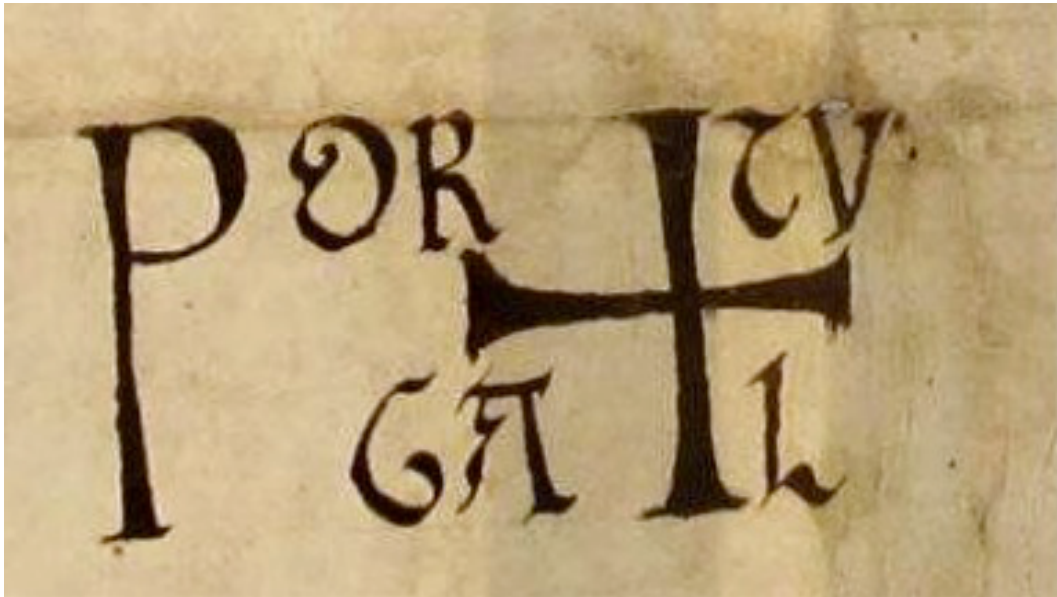 POR TV
GAL